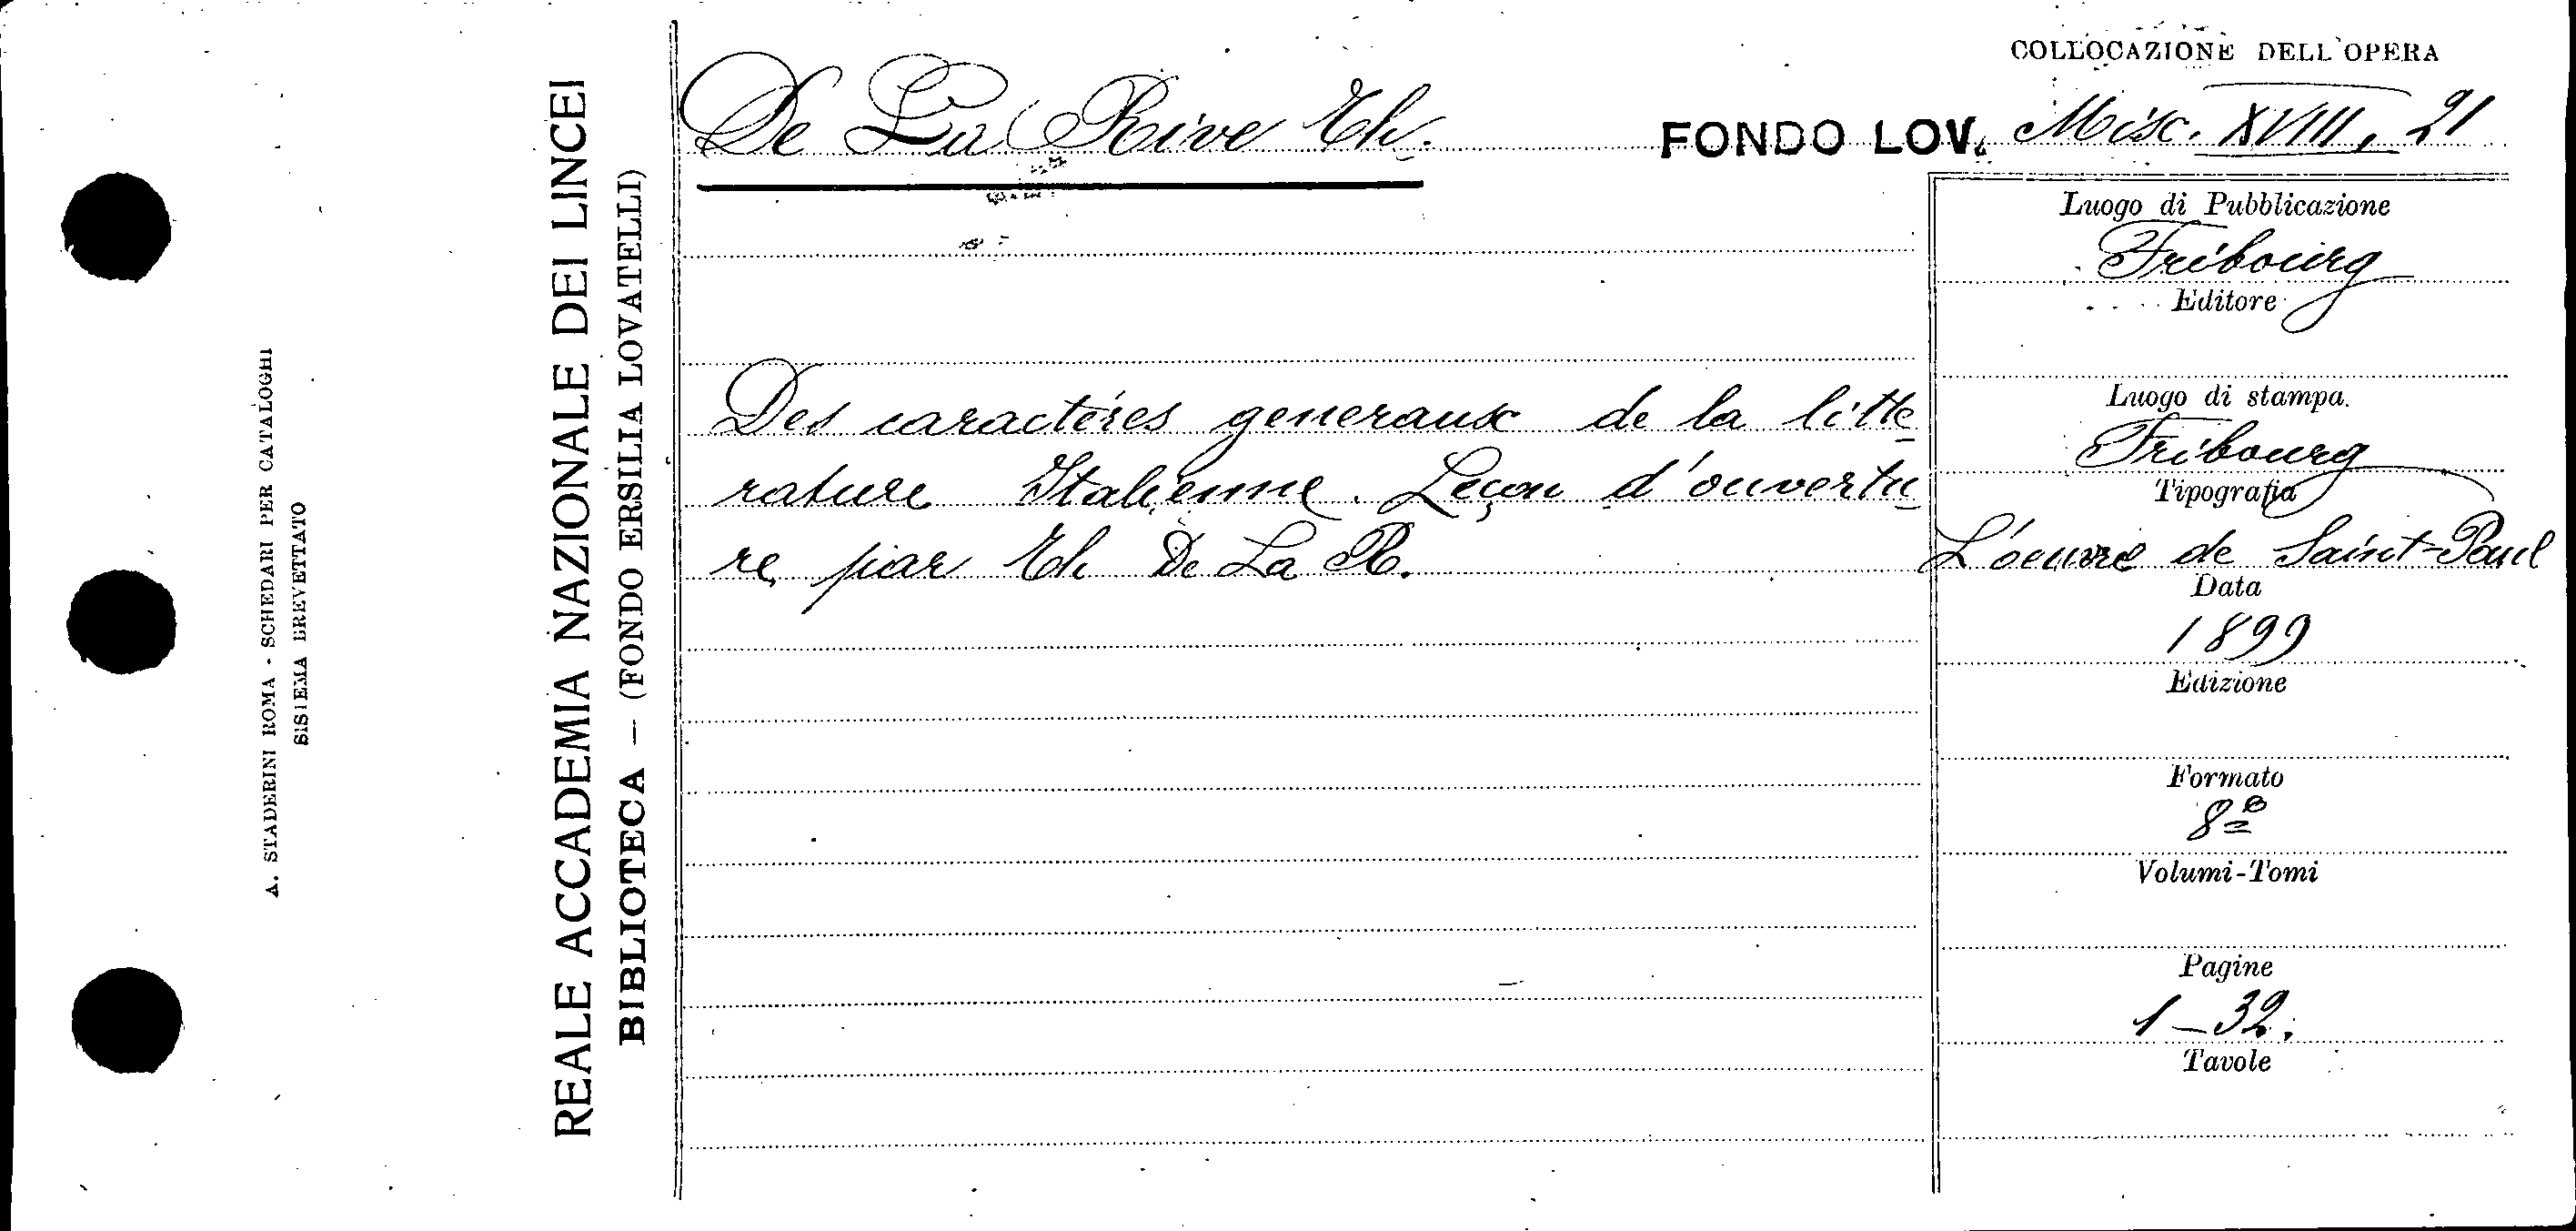 A. STADERINI ROMA - SCHEDARI PER CATALOGHI
SISTEMA BREVETTATO
REALE ACCADEMIA NAZIONALE DEI LINCEI
BIBLIOTECA — (FONDO ERSILIA LOVATELLI)
De La Rive Th.
COLLOCAZIONE DELL'OPERA
FONDO LOV. Misc. XVIII, 21
Des caractéres generaux de la litte
rature Italienne. Leçon d'ouvertu
re par Th De La R.
Luogo di Pubblicazione
Fribourg
Editore
Luogo di stampa.
Fribourg
Tipografia
L'oeuvre de Saint-Paul
Data
1899
Edizione
Formato
8º
Volumi-Tomi
Pagine
1-32.
Tavole